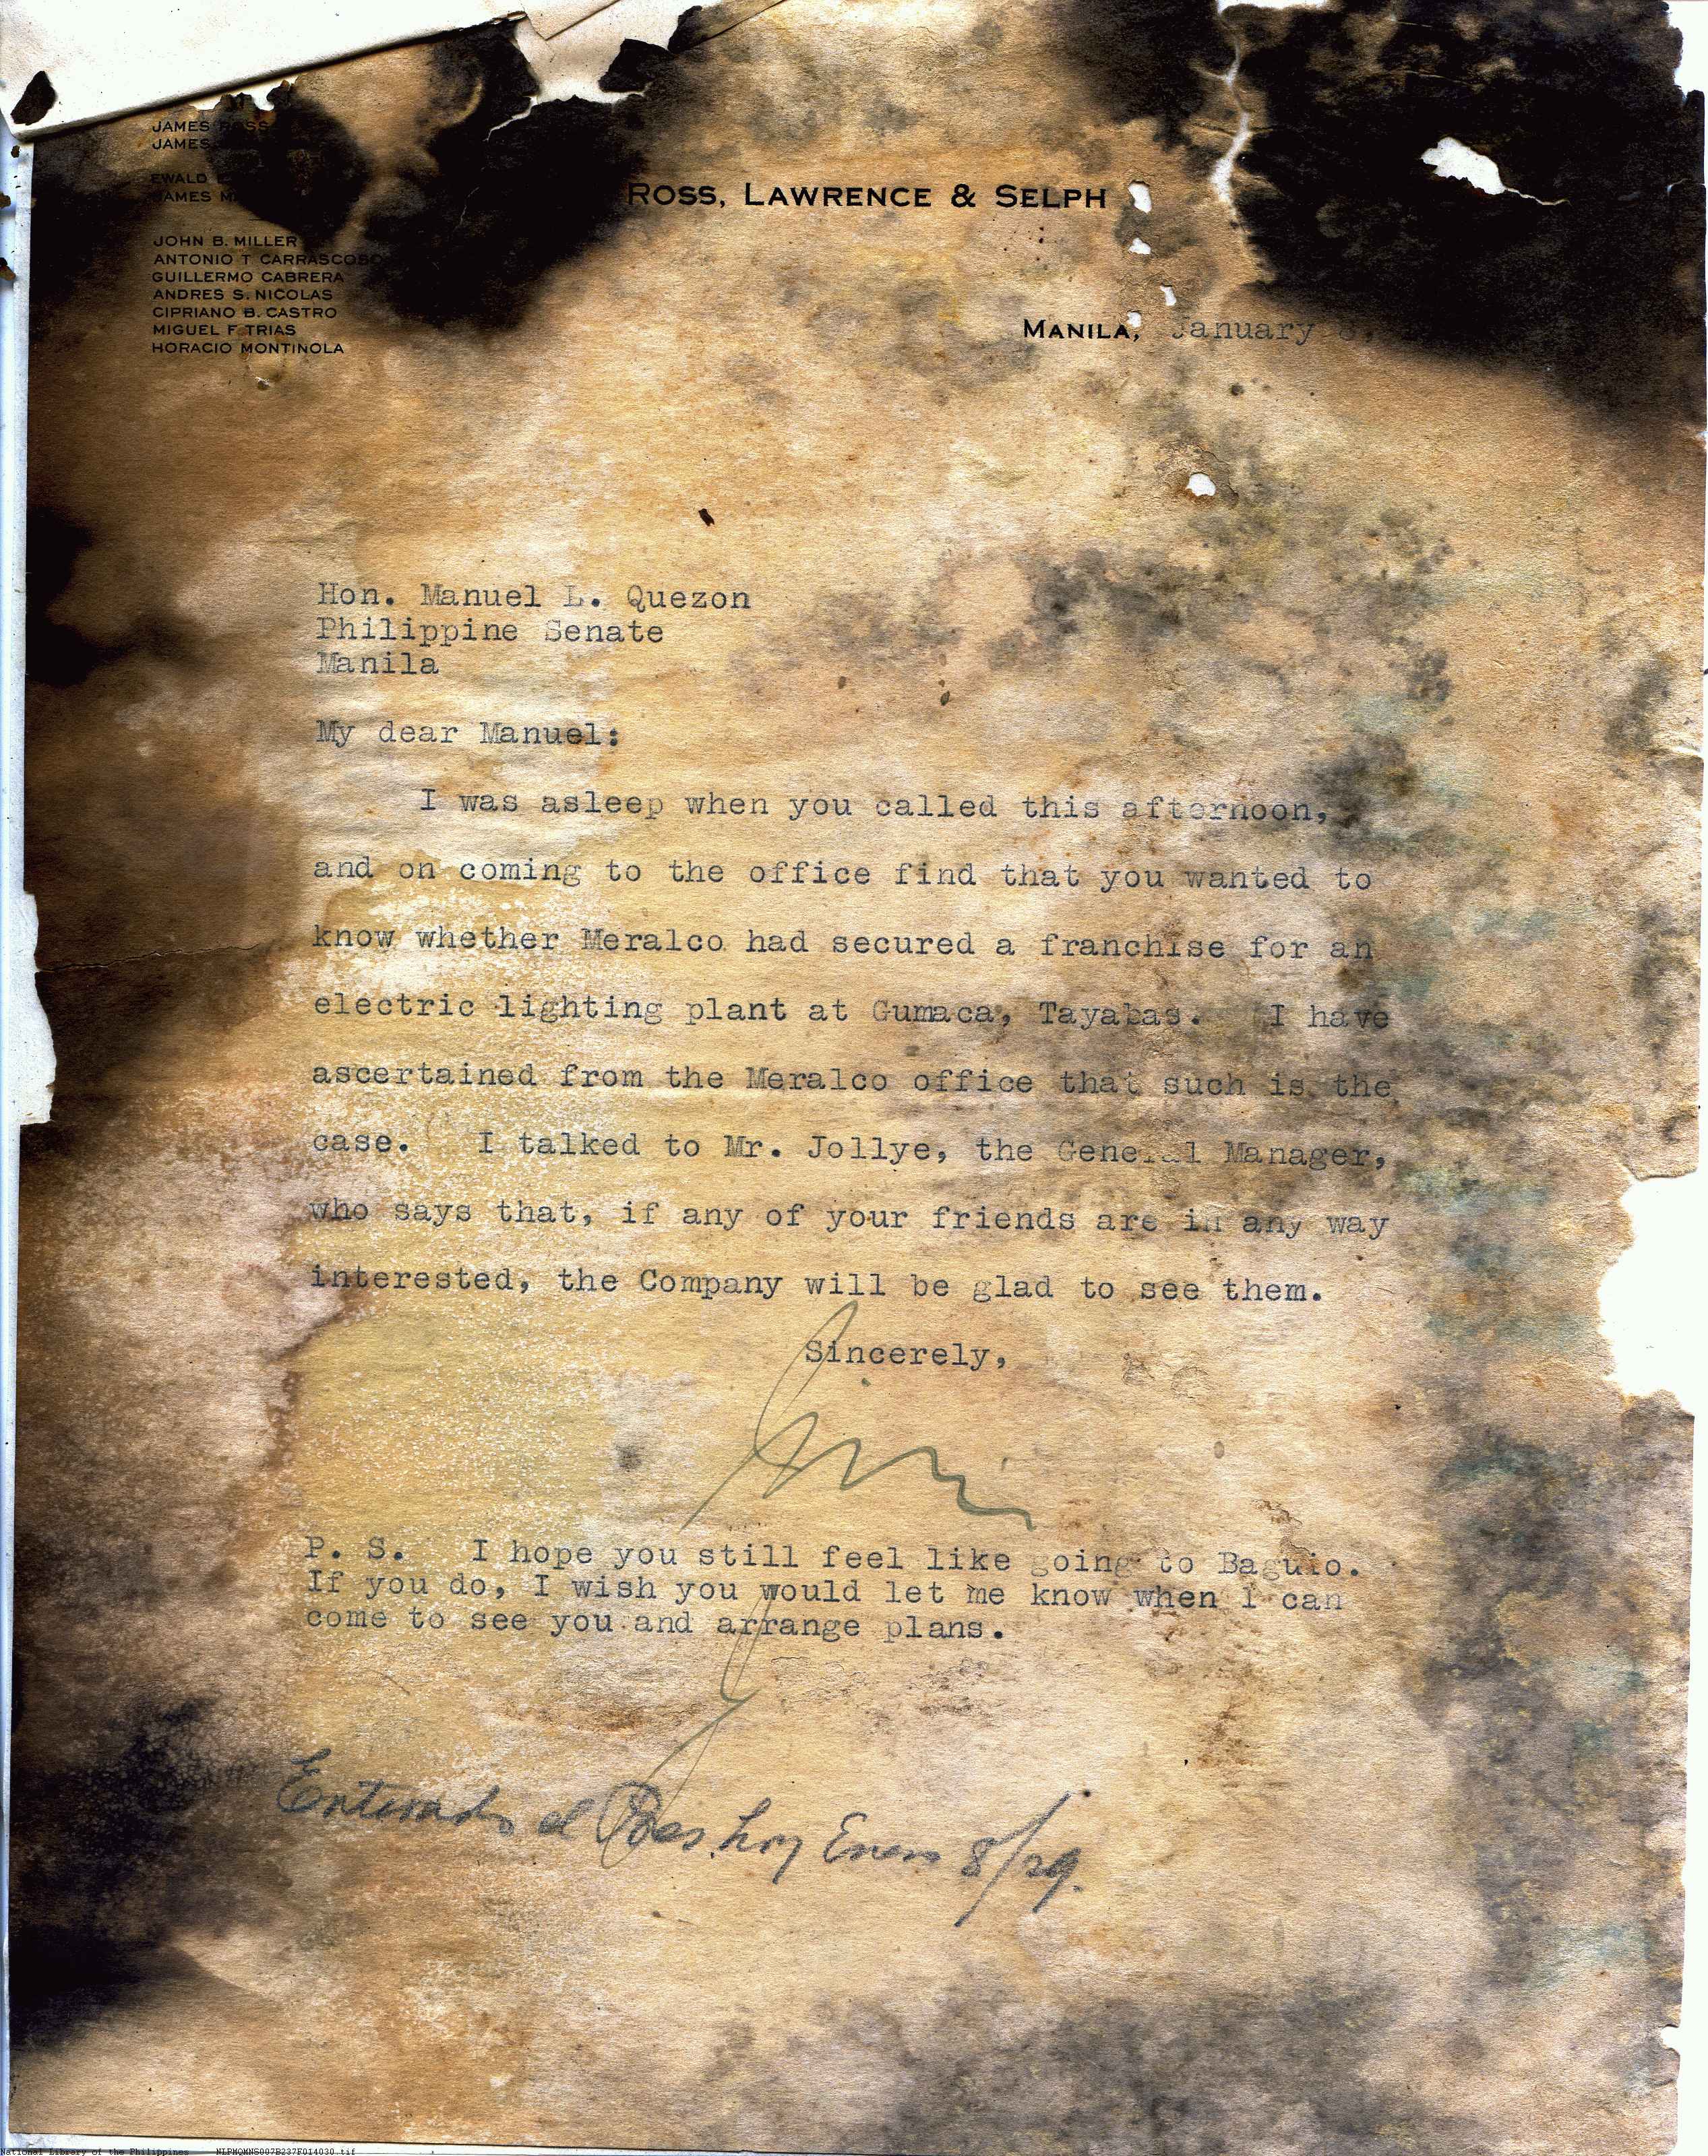 JAMES ROSS
JAMES
EWALD
JAMES
JOHN B. MILLER
ANTONIO T. CARRASCOSO
GUILLERMO CABRERA
ANDRES S. NICOLAS
CIPRIANO B. CASTRO
MIGUEL F. TRIAS
HORACIO MONTINOLA
ROSS, LAWRENCE & SELPH
MANILA, January 8,
Hon. Manuel L. Quezon
Philippine Senate
Manila
My dear Manuel:
I was asleep when you called this afternoon,
and on coming to the office find that you wanted to
know whether Meralco had secured a franchise for an
electric lighting plant at Gumaca, Tayabas. I have
ascertained from the Meralco office that such is the
case. I talked to Mr. Jollye, the General Manager,
who says that, if any of your friends are in any way
interested, the Company will be glad to see them.
Sincerely,
Jim
P. S. I hope you still feel like going to Baguio.
If you do, I wish you would let me know when I can
come to see you and arrange plans.
Enterado el Pres. hoy Enero 8/29.
National Library of the Philippines NLPMQMNS007B237F014030.tif